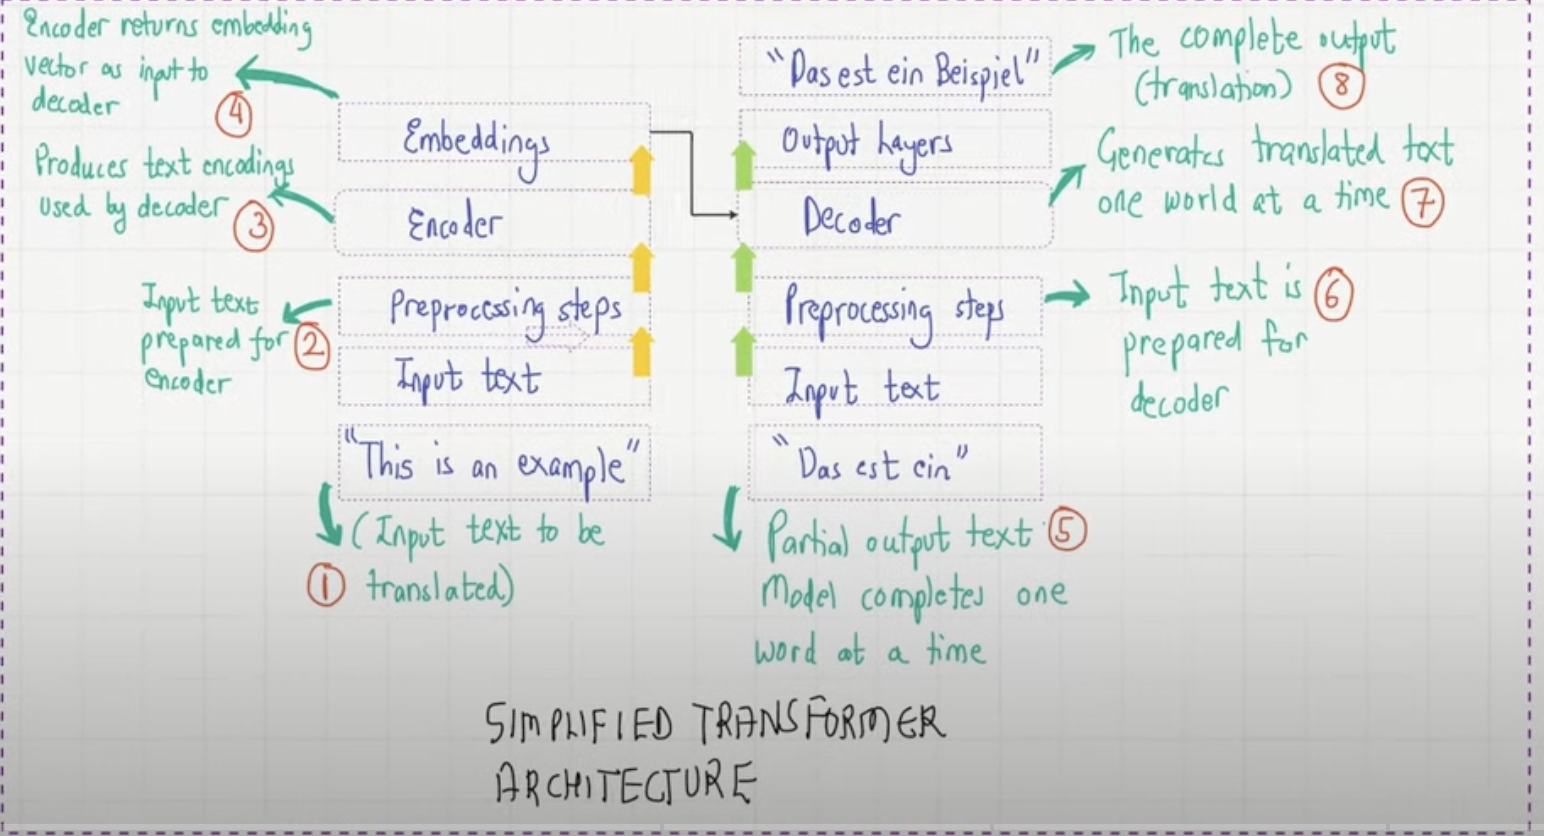 Encoder returns embedding
vector as input to
decoder
4
Produces text encodings
used by decoder
3
Input text
prepared for
encoder
2
Embeddings
Encoder
Preprocessing steps
Input text
"This is an example"
(Input text to be
translated)
1
"Das est ein Beispiel"
Output Layers
Decoder
Preprocessing steps
Input text
"Das est ein"
Partial output text
5
Model completes one
word at a time
The complete output
(translation)
8
Generates translated text
one world at a time
7
Input text is
6
prepared for
decoder
SIMPLIFIED TRANSFORMER
ARCHITECTURE